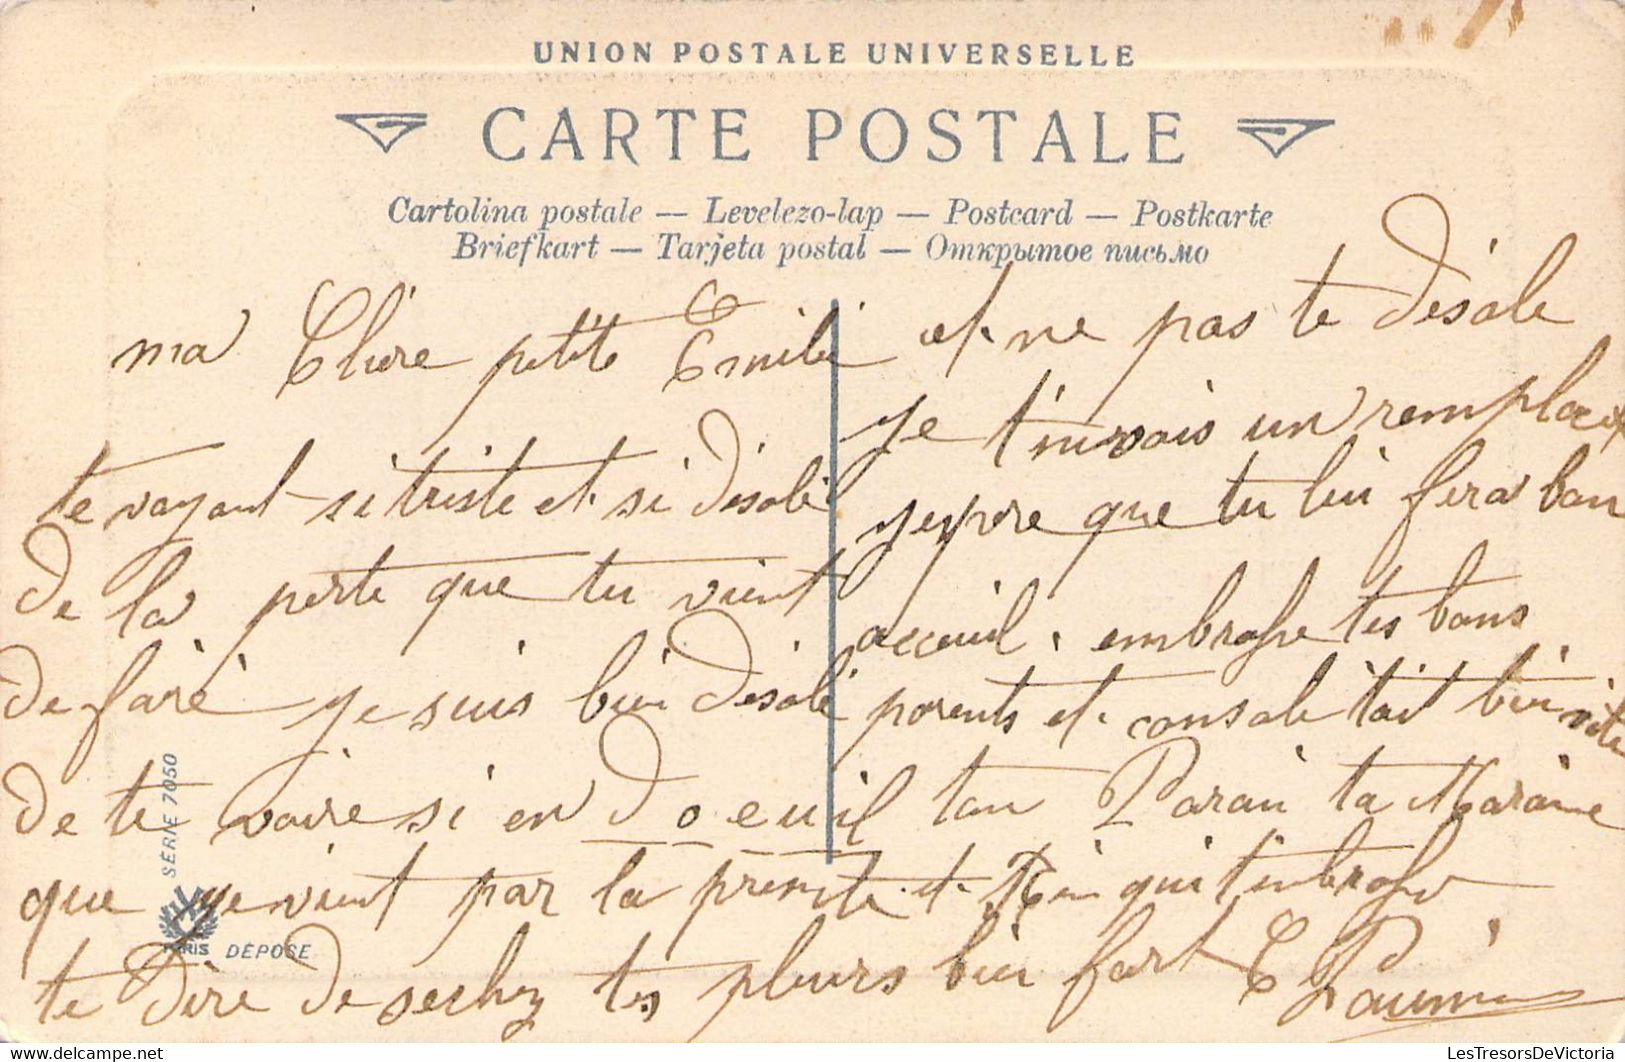 UNION POSTALE UNIVERSELLE
CARTE POSTALE
Cartolina postale — Levelezo-lap — Postcard — Postkarte
Briefkart — Tarjeta postal — Открытое письмо
ma Chère petite Emili
te voyant si triste et si désolé
de la perte que tu vient
de faire je suis bien désolé
de te voire si en doeuil
que je vient par la présente
te dire de sechez tes pleurs
et ne pas te désole
je t'invois un remplac
j'espore que tu lui fera bon
acceuil. embrasse tes bons
parents et console toit bien vite
ton Parain ta Maraine
et qui t'embrasse
bien fort E
SERIE 7050
PARIS DÉPOSÉ
LesTresorsDeVictoria
https://www.delcampe.net